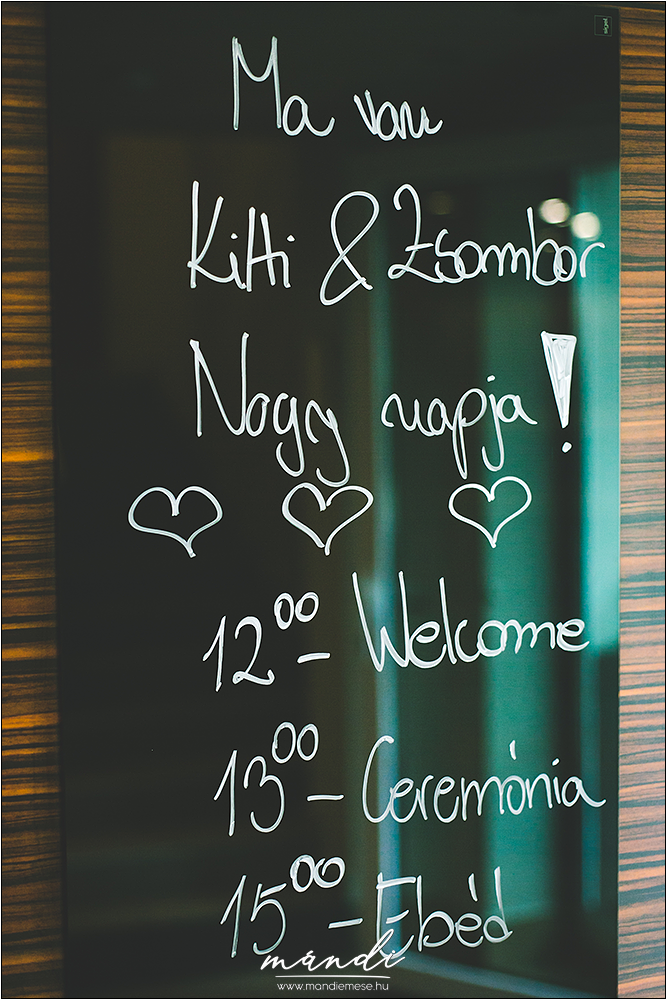 sigel
Ma van
Kitti & Zsombor
Nagy napja!
12⁰⁰ - Welcome
13⁰⁰ - Ceremónia
15⁰⁰ - Ebéd
mandi
www.mandiemese.hu